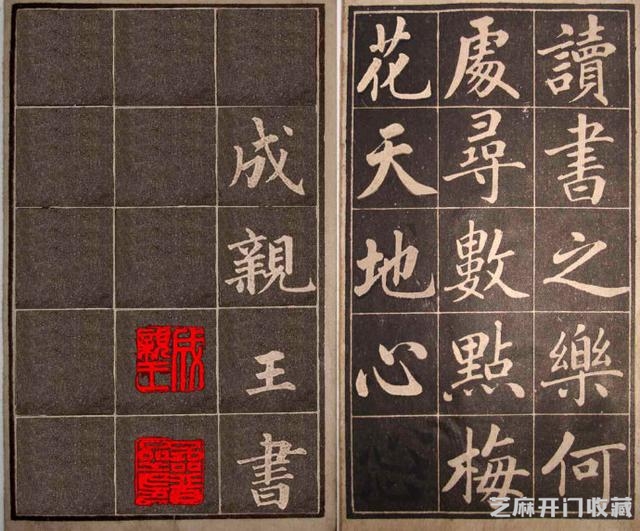 讀書之樂何
處尋數點梅
花天地心
成親王書
成親王
芝麻开门收藏